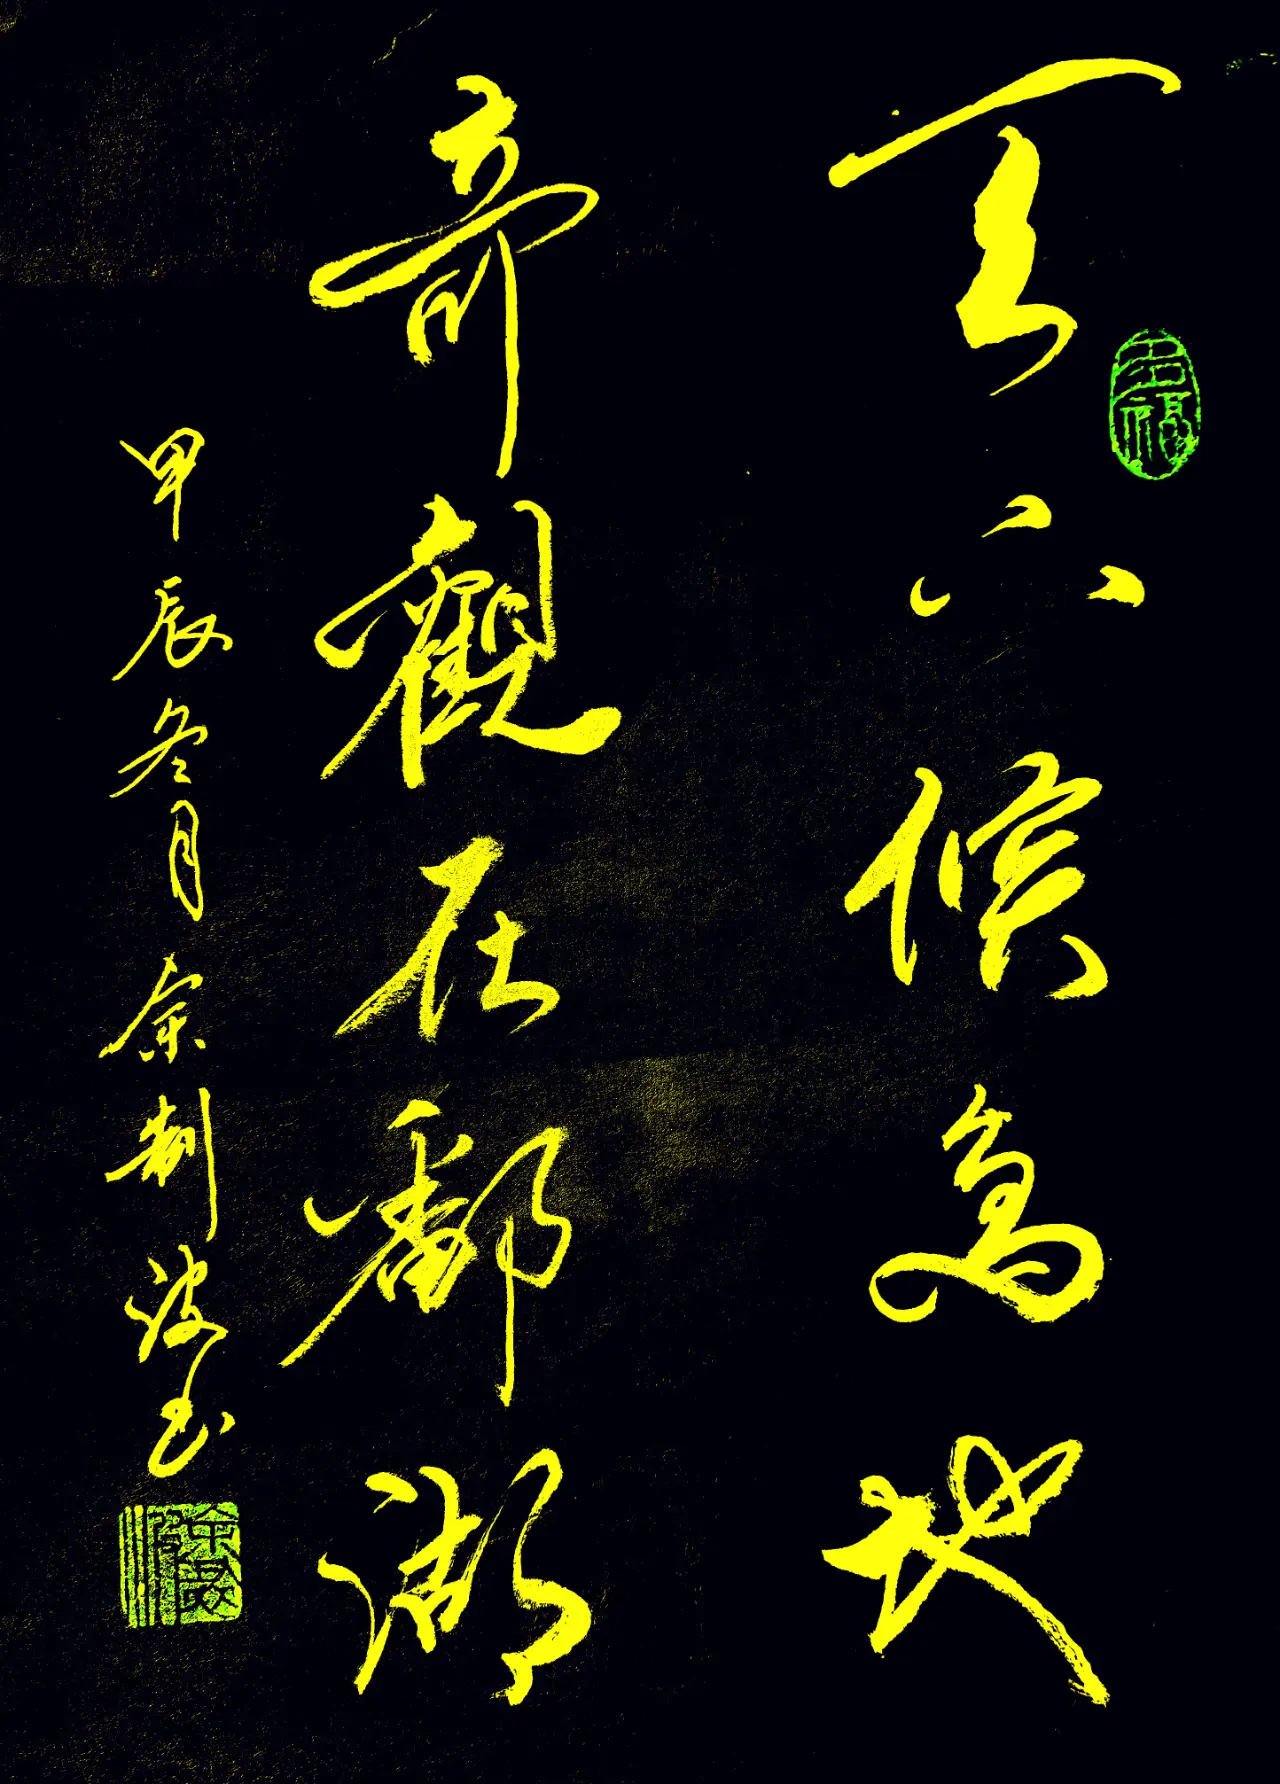 天下候鸟地
奇觀在鄱湖
甲辰冬月余波书